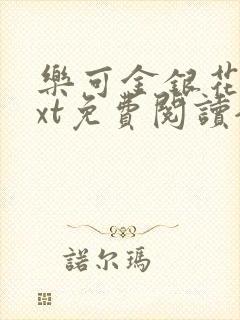 樂可金銀花
xt免費閱讀
諾尔瑪